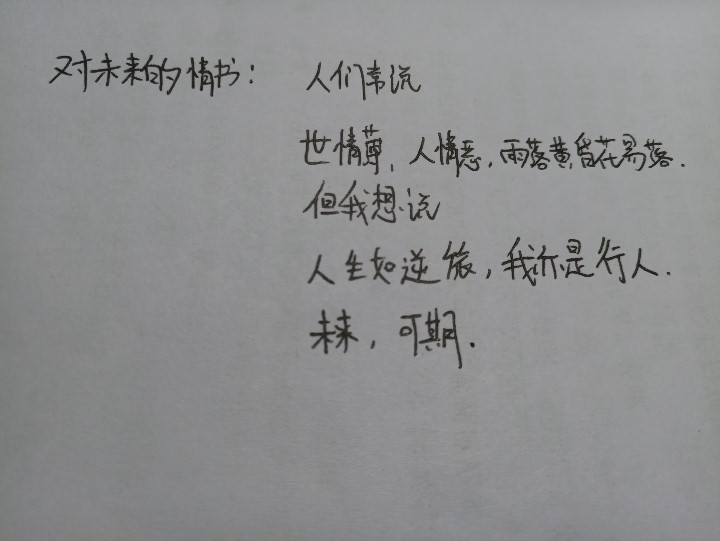 对未来的情书： 人们常说
世情薄, 人情恶, 雨落黄昏花易落.
但我想说
人生如逆旅, 我亦是行人.
未来, 可期.